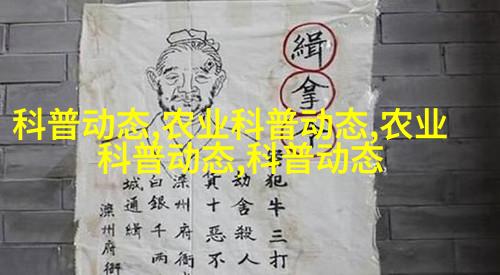 科普动态,农业科普动态,农业
科普动态,科普动态
緝拿
犯牛三打
劫舍殺人
實十惡不
滦州府衙
白銀千两
城通緝
滦州府衙